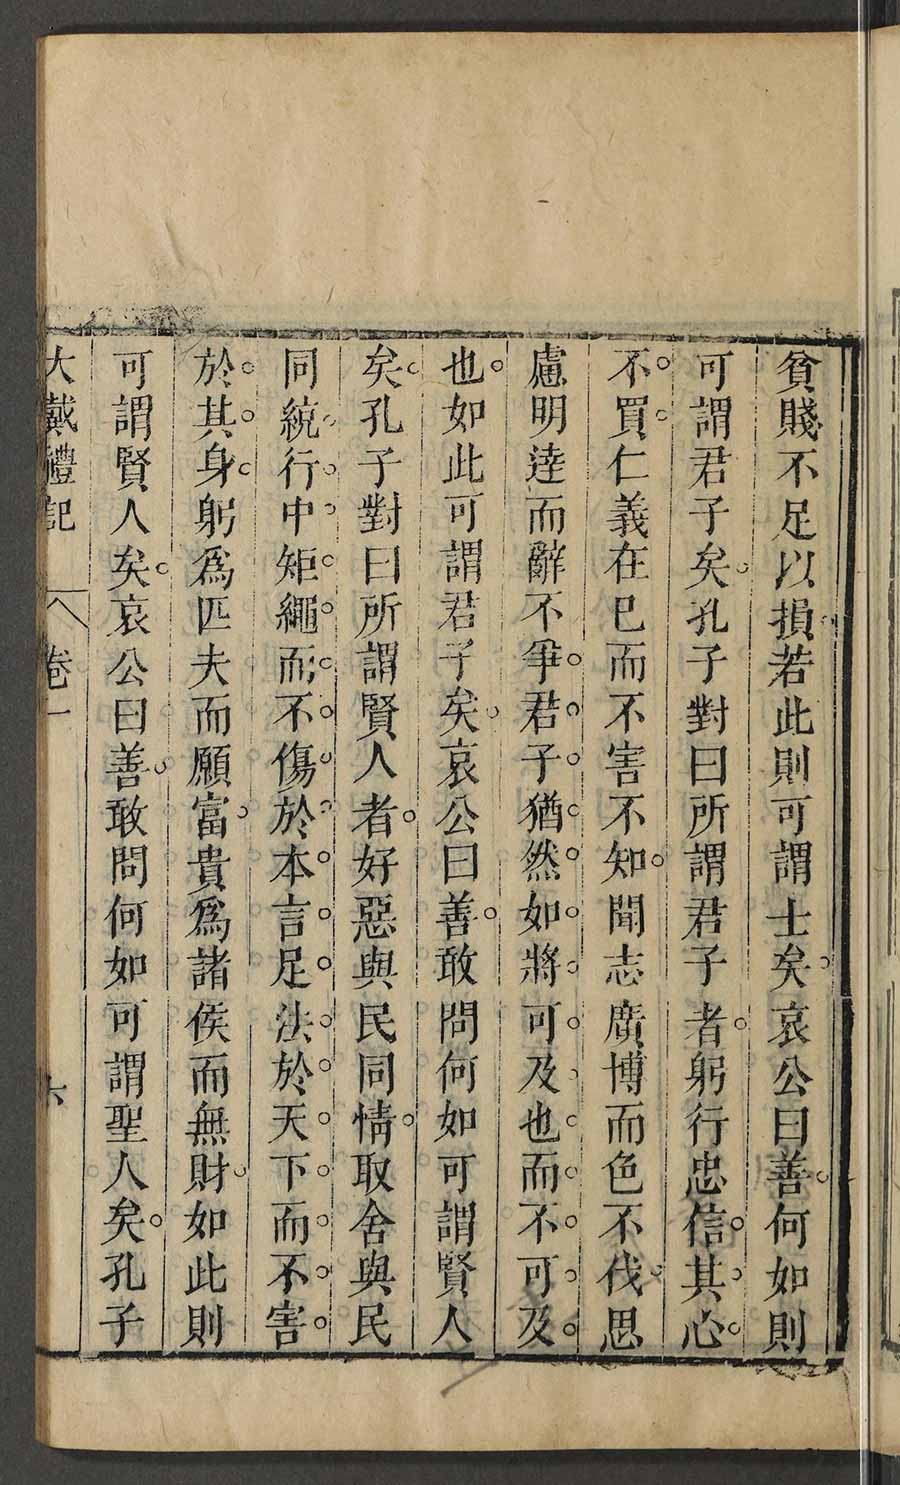 貧賤不足以損若此則可謂士矣哀公曰善何如則
可謂君子矣孔子對曰所謂君子者躬行忠信其心
不買仁義在已而不害不知聞志廣博而色不伐思
慮明逹而辭不爭君子猶然如將可及也而不可及
也如此可謂君子矣哀公曰善敢問何如可謂賢人
矣孔子對曰所謂賢人者好惡與民同情取舍與民
同統行中矩繩而不傷於本言足法於天下而不害
於其身躬爲匹夫而願富貴爲諸侯而無財如此則
可謂賢人矣哀公曰善敢問何如可謂聖人矣孔子
大戴禮記 卷一 六